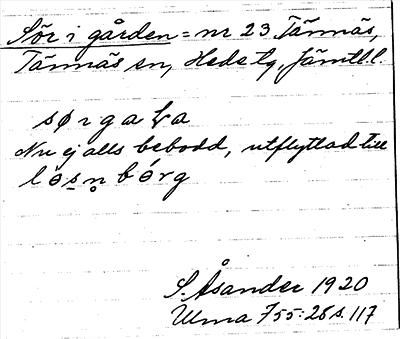 Sör i gården = nr 23 Tännäs,
Tännäs sn, Hede tg, Jämtl.l.
sørgaƚa
Nu ej alls bebodd, utflyttad till
lösn̥bórg
S. Åsander 1920
Ulma 755:28 s. 117